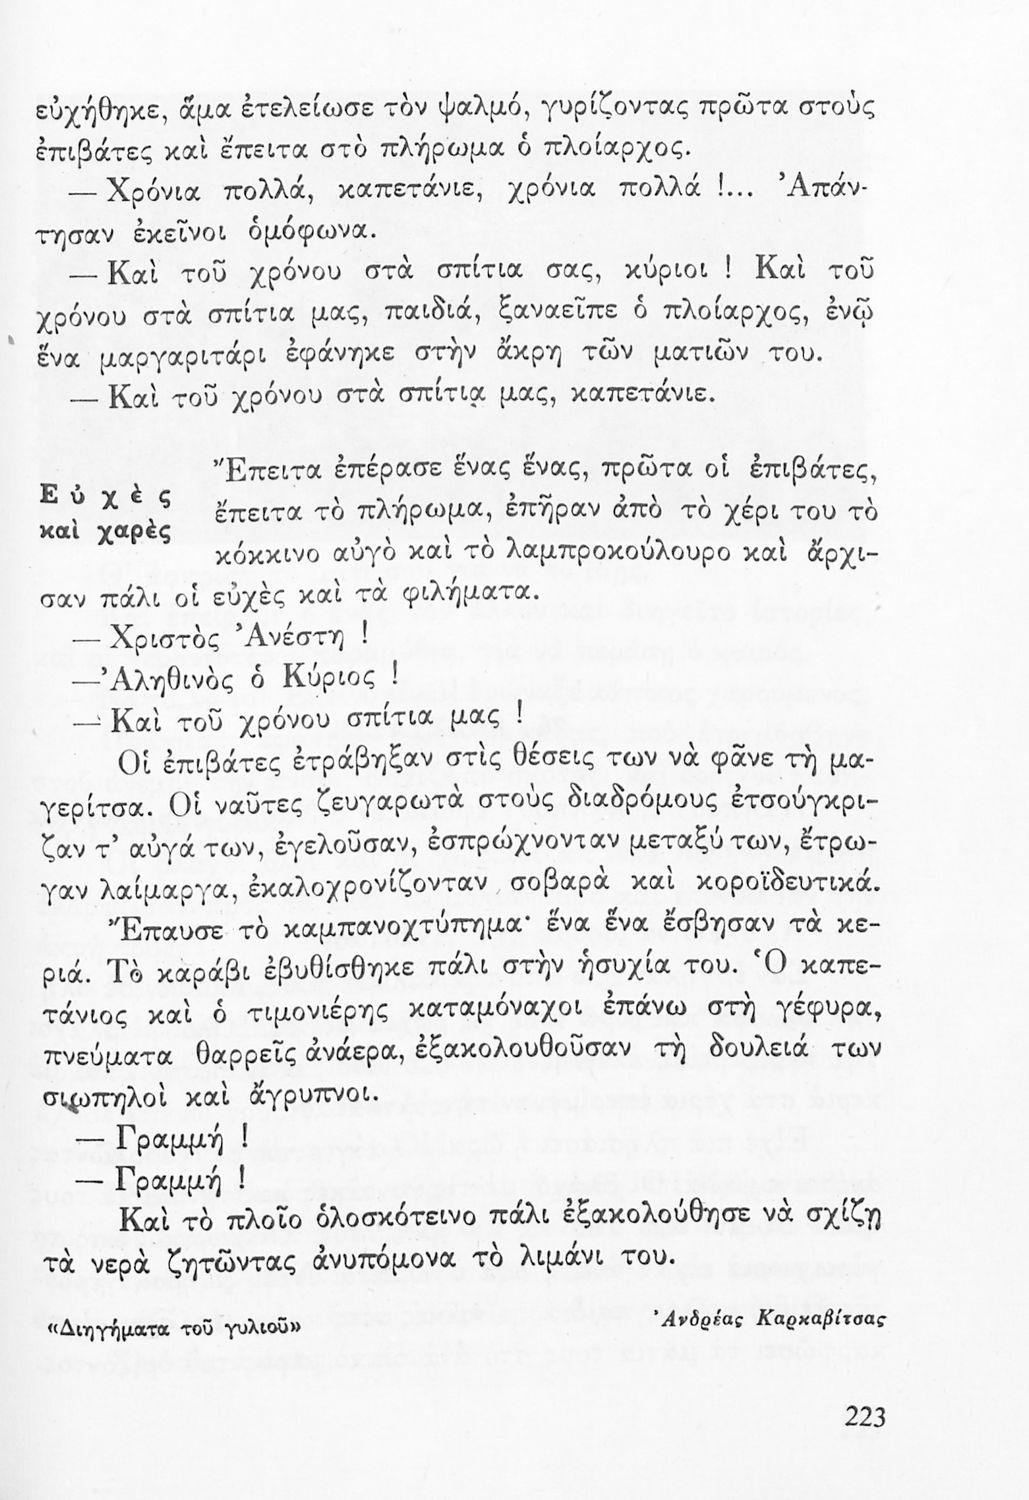 εὐχήθηκε, ἅμα ἐτελείωσε τὸν ψαλμό, γυρίζοντας πρῶτα στοὺς
ἐπιβάτες καὶ ἔπειτα στὸ πλήρωμα ὁ πλοίαρχος.
— Χρόνια πολλά, καπετάνιε, χρόνια πολλά !... Ἀπάν-
τησαν ἐκεῖνοι ὁμόφωνα.
— Καὶ τοῦ χρόνου στὰ σπίτια σας, κύριοι ! Καὶ τοῦ
χρόνου στὰ σπίτια μας, παιδιά, ξαναεῖπε ὁ πλοίαρχος, ἐνῷ
ἕνα μαργαριτάρι ἐφάνηκε στὴν ἄκρη τῶν ματιῶν του.
— Καὶ τοῦ χρόνου στὰ σπίτια μας, καπετάνιε.
Εὐχὲς
καὶ χαρὲς
Ἔπειτα ἐπέρασε ἕνας ἕνας, πρῶτα οἱ ἐπιβάτες,
ἔπειτα τὸ πλήρωμα, ἐπῆραν ἀπὸ τὸ χέρι του τὸ
κόκκινο αὐγὸ καὶ τὸ λαμπροκούλουρο καὶ ἄρχι-
σαν πάλι οἱ εὐχὲς καὶ τὰ φιλήματα.
— Χριστὸς Ἀνέστη !
— Ἀληθινὸς ὁ Κύριος !
— Καὶ τοῦ χρόνου σπίτια μας !
Οἱ ἐπιβάτες ἐτράβηξαν στὶς θέσεις των νὰ φᾶνε τὴ μα-
γερίτσα. Οἱ ναῦτες ζευγαρωτὰ στοὺς διαδρόμους ἐτσούγκρι-
ζαν τ’ αὐγά των, ἐγελοῦσαν, ἐσπρώχνονταν μεταξύ των, ἔτρω-
γαν λαίμαργα, ἐκαλοχρονίζονταν σοβαρὰ καὶ κοροϊδευτικά.
Ἔπαυσε τὸ καμπανοχτύπημα· ἕνα ἕνα ἔσβησαν τὰ κε-
ριά. Τὸ καράβι ἐβυθίσθηκε πάλι στὴν ἡσυχία του. Ὁ καπε-
τάνιος καὶ ὁ τιμονιέρης καταμόναχοι ἐπάνω στὴ γέφυρα,
πνεύματα θαρρεῖς ἀνάερα, ἐξακολουθοῦσαν τὴ δουλειά των
σιωπηλοὶ καὶ ἄγρυπνοι.
— Γραμμή !
— Γραμμή !
Καὶ τὸ πλοῖο ὁλοσκότεινο πάλι ἐξακολούθησε νὰ σχίζῃ
τὰ νερὰ ζητῶντας ἀνυπόμονα τὸ λιμάνι του.
«Διηγήματα τοῦ γυλιοῦ»
Ἀνδρέας Καρκαβίτσας
223